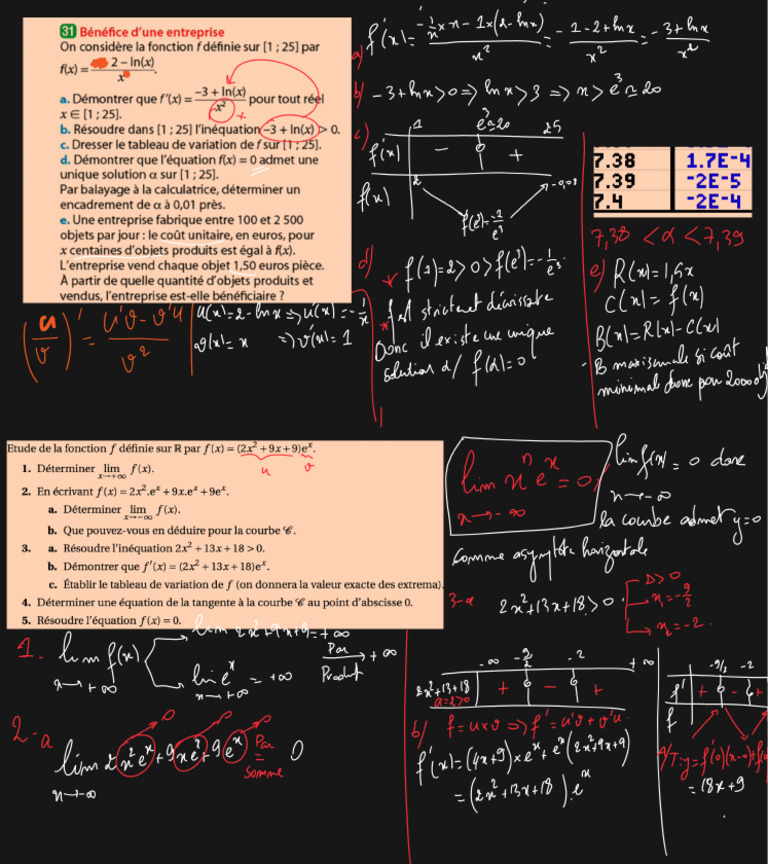 31 Bénéfice d'une entreprise
On considère la fonction f définie sur [1 ; 25] par
f(x) = 2 – ln(x) / x.
a. Démontrer que f'(x) = –3 + ln(x) / x² pour tout réel
x ∈ [1 ; 25].
b. Résoudre dans [1 ; 25] l'inéquation –3 + ln(x) > 0.
c. Dresser le tableau de variation de f sur [1 ; 25].
d. Démontrer que l'équation f(x) = 0 admet une
unique solution α sur [1 ; 25].
Par balayage à la calculatrice, déterminer un
encadrement de α à 0,01 près.
e. Une entreprise fabrique entre 100 et 2 500
objets par jour : le coût unitaire, en euros, pour
x centaines d'objets produits est égal à f(x).
L'entreprise vend chaque objet 1,50 euros pièce.
À partir de quelle quantité d'objets produits et
vendus, l'entreprise est-elle bénéficiaire ?
(u/v)' = u'v - v'u / v²
u(x)=2-ln x => u'(x)=-1/x
v(x)=x => v'(x)=1
a) f'(x)= -1/x × x - 1×(2-ln x) / x² = -1-2+ln x / x² = -3+ln x / x²
b) -3+ln x>0 => ln x>3 => x>e³ ≃ 20
c) 1 e³≃20 25
f'(x) - 0 +
f(x) 2 f(e³)=-1/e³ -0,08
d) f(1)=2>0>f(e³)=-1/e³
* f est strictement décroissante
Donc il existe une unique
solution α / f(α)=0
7.38 1.7E-4
7.39 -2E-5
7.4 -2E-4
7,38 < α < 7,39
e) R(x)=1,5x
C(x)=f(x)
B(x)=R(x)-C(x)
B maximale si coût
minimal donc pour 2000
Etude de la fonction f définie sur ℝ par f(x) = (2x² + 9x + 9)eˣ.
u v
1. Déterminer lim x→+∞ f(x).
2. En écrivant f(x) = 2x².eˣ + 9x.eˣ + 9eˣ.
a. Déterminer lim x→−∞ f(x).
b. Que pouvez-vous en déduire pour la courbe 𝒞.
3. a. Résoudre l'inéquation 2x² + 13x + 18 > 0.
b. Démontrer que f'(x) = (2x² + 13x + 18)eˣ.
c. Établir le tableau de variation de f (on donnera la valeur exacte des extrema).
4. Déterminer une équation de la tangente à la courbe 𝒞 au point d'abscisse 0.
5. Résoudre l'équation f(x) = 0.
lim xⁿ eˣ = 0
x→-∞
lim f(x) = 0 donc
x→-∞
la courbe admet y=0
comme asymptote horizontale
3-a 2x²+13x+18>0
Δ>0
x₁=-9/2
x₂=-2
1- lim f(x) x→+∞
lim 2x²+9x+9=+∞
lim eˣ = +∞ x→+∞
Par Produit +∞
2-a lim 2x²eˣ+9xeˣ+9eˣ Par Somme 0
x→-∞
-∞ -9/2 -2 +∞
2x²+13x+18 + 0 - 0 +
a=2>0
b) f=u×v => f'=u'v+v'u
f'(x)=(4x+9)×eˣ+eˣ(2x²+9x+9)
=(2x²+13x+18).eˣ
-9/2 -2
f' + 0 - 0 +
f
4/T:y=f'(0)(x-0)+f(0)
=18x+9